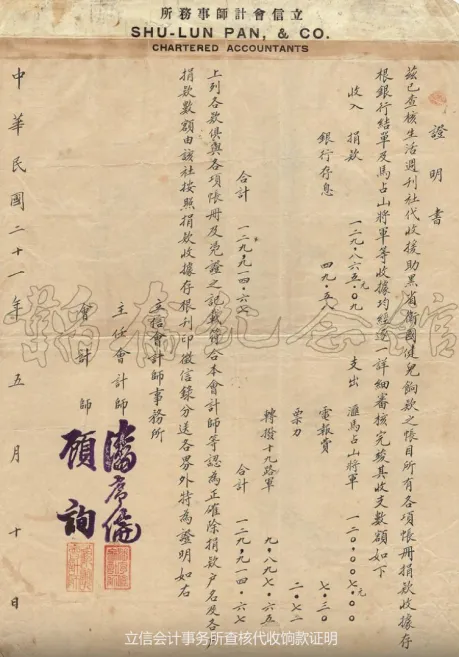 立信會計師事務所
SHU-LUN PAN, & CO.
CHARTERED ACCOUNTANTS
證明書
茲已查核生活週刊社代收援助黑省衛國健兒餉款之帳目所有各項帳冊捐款收據存
根銀行結單及馬占山將軍等收據均經逐一詳細審核完竣其收支數額如下
收入 捐款 一二九·八六五·〇九元 支出 滙馬占山將軍 一二〇·〇〇七·〇〇元
銀行存息 四九·五八 電報費 七·三〇
票力 二·七二
轉撥十九路軍 九·八九七·六五
合計 一二九·九一四·六七 合計 一二九·九一四·六七
上列各款俱與各項帳冊及憑證之記載符合本會計師等認為正確除捐款戶名及各戶
捐款數額由該社按照捐款收據存根刊印徵信錄分送各界外特為證明如右
立信會計師事務所
主任會計師 潘序倫
會計師 顧詢
中華民國二十一年五月十日
韜奮紀念館
立信会计事务所查核代收饷款证明